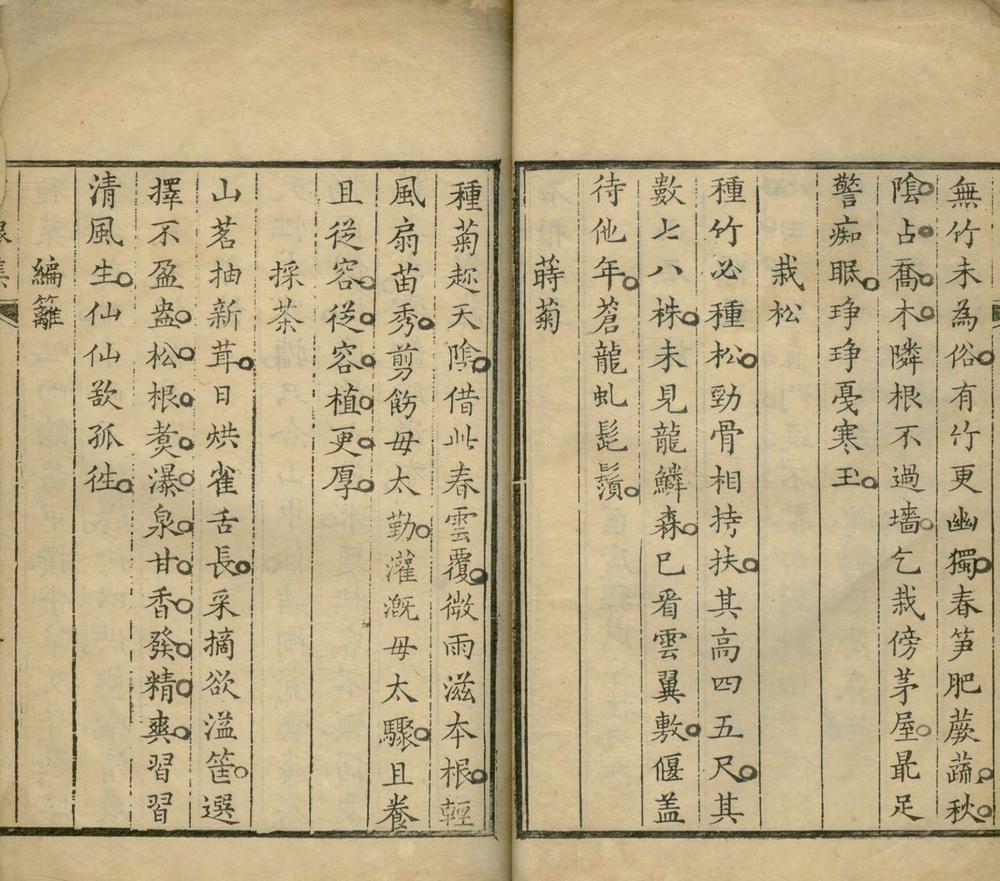 無竹未為俗有竹更幽獨春笋肥蕨蔬秋
隂占喬木隣根不過墻乞栽傍茅屋最足
警痴眠琤琤戞寒玉
栽松
種竹必種松勁骨相持扶其高四五尺其
數七八株未見龍鱗森已看雲翼敷偃盖
待他年蒼龍虬髭鬚
蒔菊
種菊趂天隂借此春雲覆微雨滋本根輕
風扇苗秀剪飭毋太勤灌溉毋太驟且養
且從容從容植更厚
採茶
山茗抽新茸日烘雀舌長采摘欲溢筐選
擇不盈盎松根煑瀑泉甘香發精爽習習
清風生仙仙欲孤徃
編籬